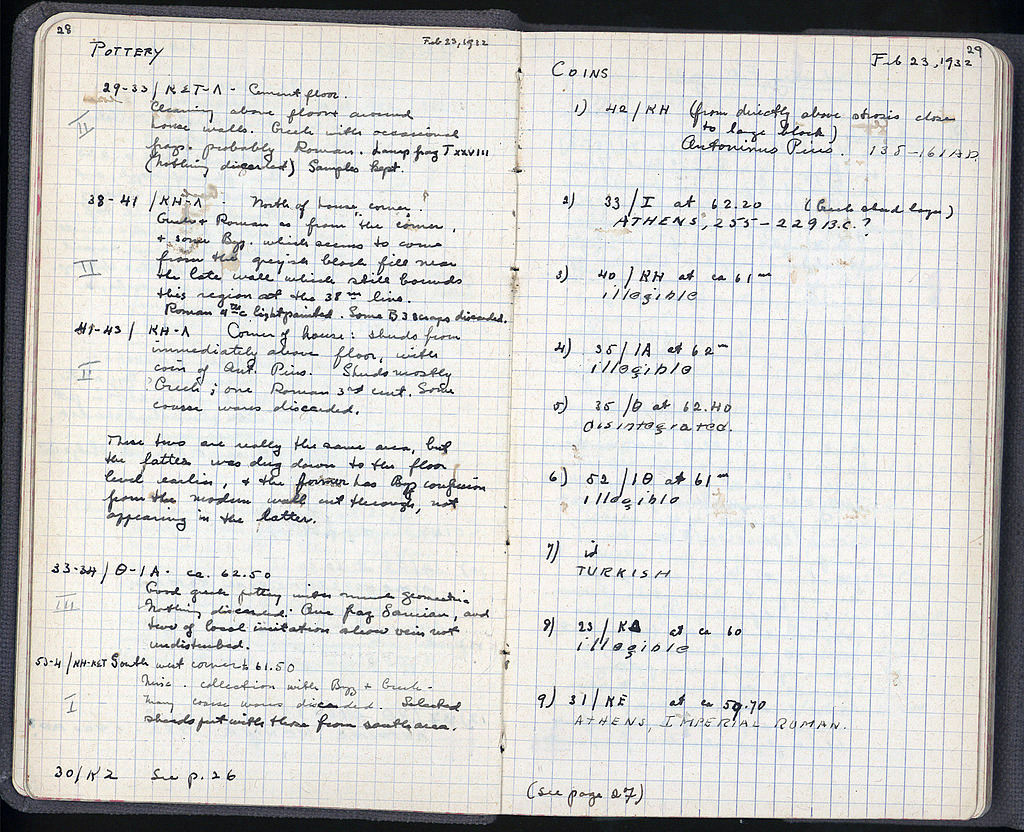 28
Feb 23, 1932
POTTERY
29-33 / KET-Λ - Cement floor.
Cleaning above floors around
house walls. Greek with occasional
frags. probably Roman. Lamp frag T XXVIII
(Nothing discarded) Samples kept.
II
38-41 / KH-Λ - North of house corner.
Greek + Roman as from the corner,
+ some Byz. which seems to come
from the greyish black fill near
the late wall which still bounds
this region at the 38 m line.
Roman 4th c light painted. Some B3 scraps discarded.
II
41-43 / KH-Λ Corner of house: sherds from
immediately above floor, with
coin of Ant. Pius. Sherds mostly
Greek; one Roman 3rd cent. Some
coarse wares discarded.
II
These two are really the same area, but
the latter was dug down to the floor
level earlier, + the former has Byz confusion
from the modern wall cut through, not
appearing in the latter.
33-34 / Θ-IA. ca. 62.50
Good greek pottery with much geometric
Nothing discarded. One frag Samian, and
two of local imitation show vein not
undisturbed.
III
53-4 / NH-KET South west corner 61.50
Misc. collection with Byz + Greek -
Many coarse wares discarded. Selected
sherds put with those from south area.
I
30/KZ See p. 26
29
Feb 23, 1932
COINS
1) 42/KH (from directly above strosis close
to large block)
Antoninus Pius. 138-161 A.D.
2) 33/I at 62.20 (Greek sherd layer)
ATHENS, 255-229 B.C.?
3) 40/KH at ca 61 m
illegible
4) 35/IA at 62 m
illegible
5) 35/Θ at 62.40
disintegrated.
6) 52/IΘ at 61 m
illegible
7) id
TURKISH
8) 23/KΔ at ca 60
illegible
9) 31/KE at ca 59.70
ATHENS, IMPERIAL ROMAN.
(see page 27)